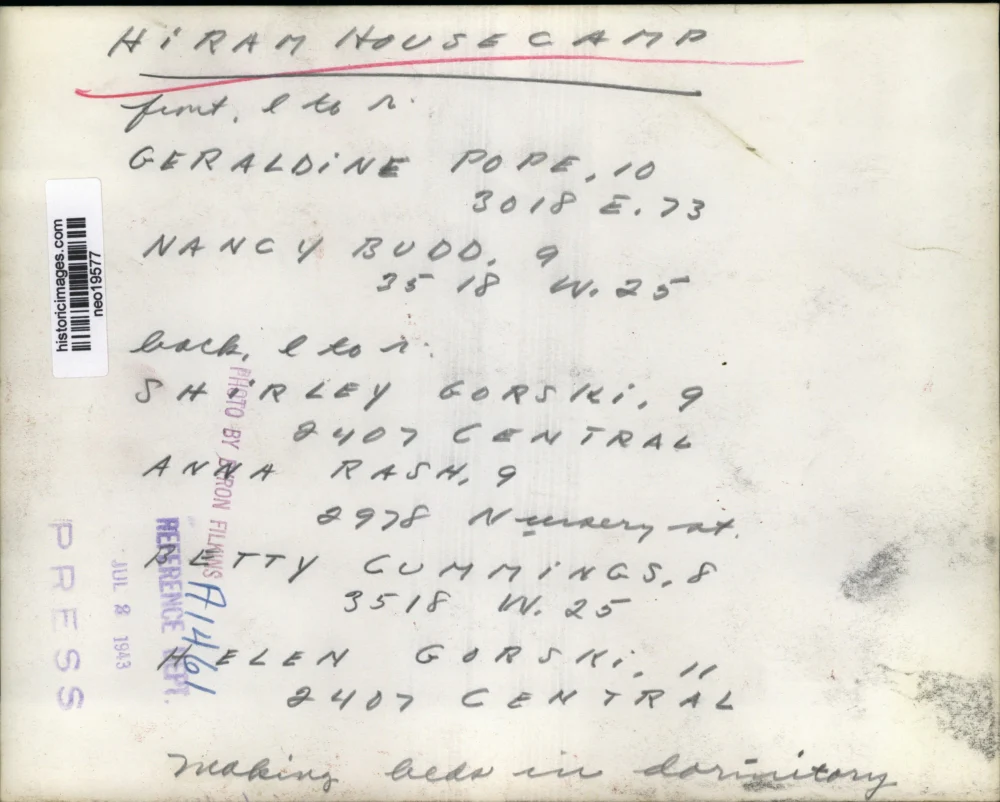 HiRAM HOUSE CAMP
front, l to r.
GERALDiNE POPE, 10
3018 E. 73
NANCY BUDD, 9
3518 W. 25
back, l to r.
SHiRLEY GORSKi, 9
2407 CENTRAL
ANNA RASH, 9
2978 Nursery st.
BETTY CUMMiNGS, 8
3518 W. 25
HELEN GORSKi, 11
2407 CENTRAL
making beds in dormitory
historicimages.com
neo19577
PHOTO BY BYRON FILKINS
REFERENCE DEPT.
A1461
JUL 8 1943
PRESS